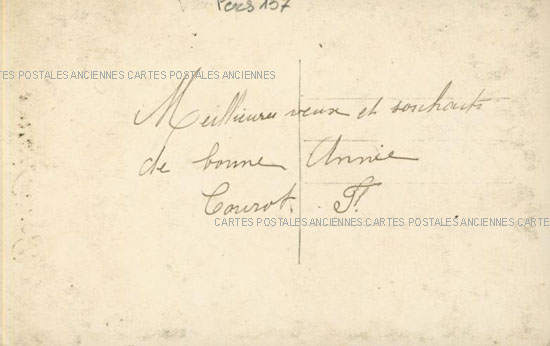 Pers 157
CARTES POSTALES ANCIENNES CARTES POSTALES ANCIENNES
Meilleures veux et souhaits
de bonne Annie
Courot. P.
CARTES POSTALES ANCIENNES CARTES POSTALES ANCIENNES